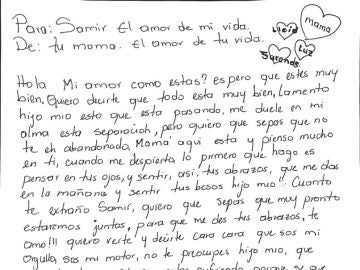 Para: Samir El amor de mi vida.
De: tu mama. El amor de tu vida.
mama
Luz
Hola Mi amor como estas? espero que estes muy
bien, Quiero decirte que todo esta muy bien, Lamento
hijo mio esto que esta pasando, me duele en mi
alma esta separación, pero quiero que sepas que no
te eh abandonado, Mamá aqui esta y pienso mucho
en ti, cuando me despierto lo primero que hago es
pensar en tus ojos, y sentir, asi, tus abrazos, que me das
en la mañana y sentir tus besos hijo mio!! Cuanto
te extraño Samir, quiero que sepas que muy pronto
estaremos juntos, para que me des tus abrazos, te
amo!!! quiero verte y decirte cara cara que sos mi
Orgullo, sos mi motor, no te preocupes hijo mio, que